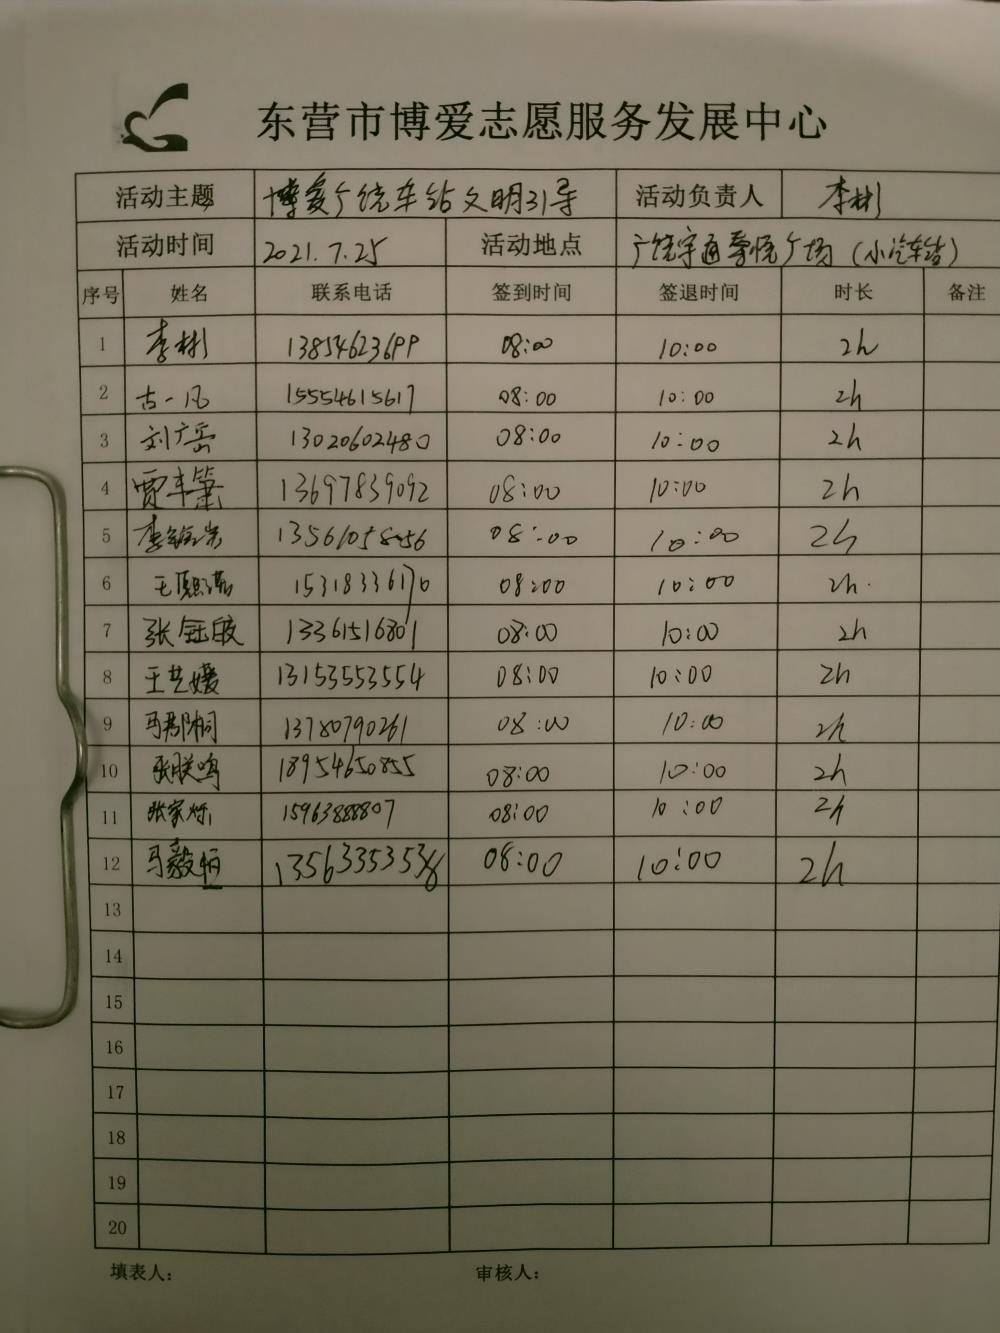 东营市博爱志愿服务发展中心
活动主题 博爱广饶车站文明引导 活动负责人 李彬
活动时间 2021.7.25 活动地点 广饶宇通尊悦广场（小汽车站）
序号 姓名 联系电话 签到时间 签退时间 时长 备注
1 李彬 13854623699 08:00 10:00 2h
2 古一凡 15554615617 08:00 10:00 2h
3 刘广岳 13020602480 08:00 10:00 2h
4 贾丰 13697839092 08:00 10:00 2h
5 李 13561058456 08:00 10:00 2h
6 王熙 15318336170 08:00 10:00 2h.
7 张钰皎 13361516801 08:00 10:00 2h
8 王艺媛 13153553554 08:00 10:00 2h
9 马郡桐 13780790261 08:00 10:00 2h
10 张朕鸣 18954650855 08:00 10:00 2h
11 张家烁 15963888807 08:00 10:00 2h
12 马毅恒 13563353538 08:00 10:00 2h
13
14
15
16
17
18
19
20
填表人： 审核人：